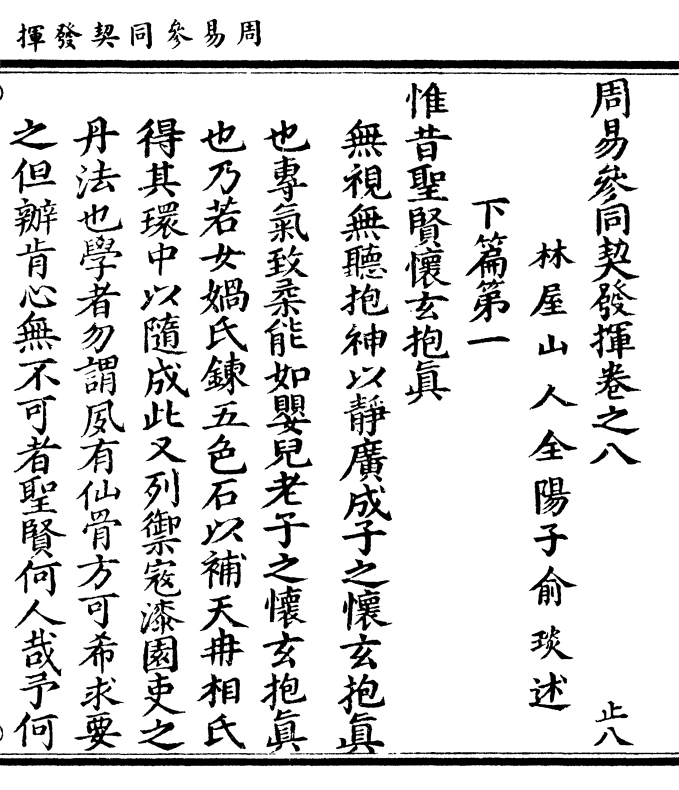 周易參同契發揮
周易參同契發揮卷之八
林屋山人全陽子俞琰述
止八
下篇第一
惟昔聖賢懷玄抱眞
無視無聽抱神以靜廣成子之懷玄抱眞
也專氣致柔能如嬰兒老子之懷玄抱眞
也乃若女媧氏鍊五色石以補天冉相氏
得其環中以隨成此又列禦寇漆園吏之
丹法也學者勿謂夙有仙骨方可希求要
之但辦肯心無不可者聖賢何人哉予何